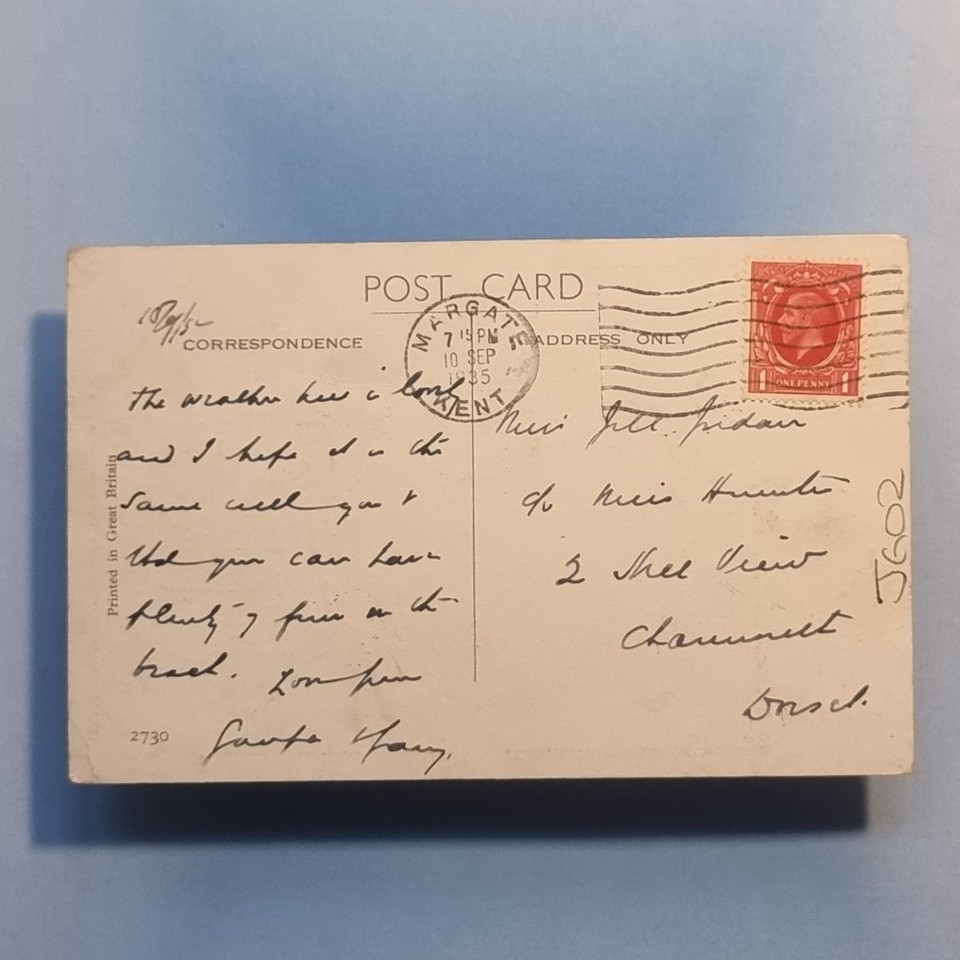 POST CARD
CORRESPONDENCE
ADDRESS ONLY
MARGATE
7 15 PM
10 SEP
1935
KENT
1 ONE PENNY 1
The weather here is lovely
and I hope it is the
same with you &
that you can have
plenty of fun on the
beach. Love from
Miss Jill
c/o Miss Hunter
2 Hill View
Charmouth
Dorset.
Printed in Great Britain
2730
J602